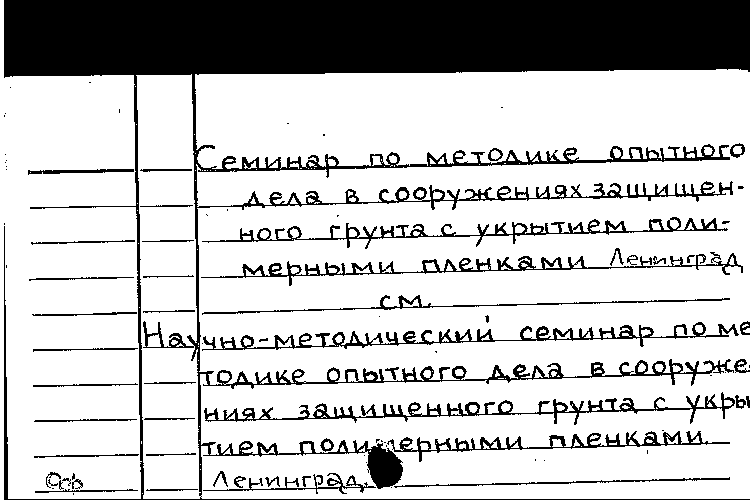 Семинар по методике опытного
дела в сооружениях защищен-
ного грунта с укрытием поли-
мерными пленками Ленинград
см.
Научно-методический семинар по ме
тодике опытного дела в сооруже
ниях защищенного грунта с укры
тием полимерными пленками.
Ленинград.